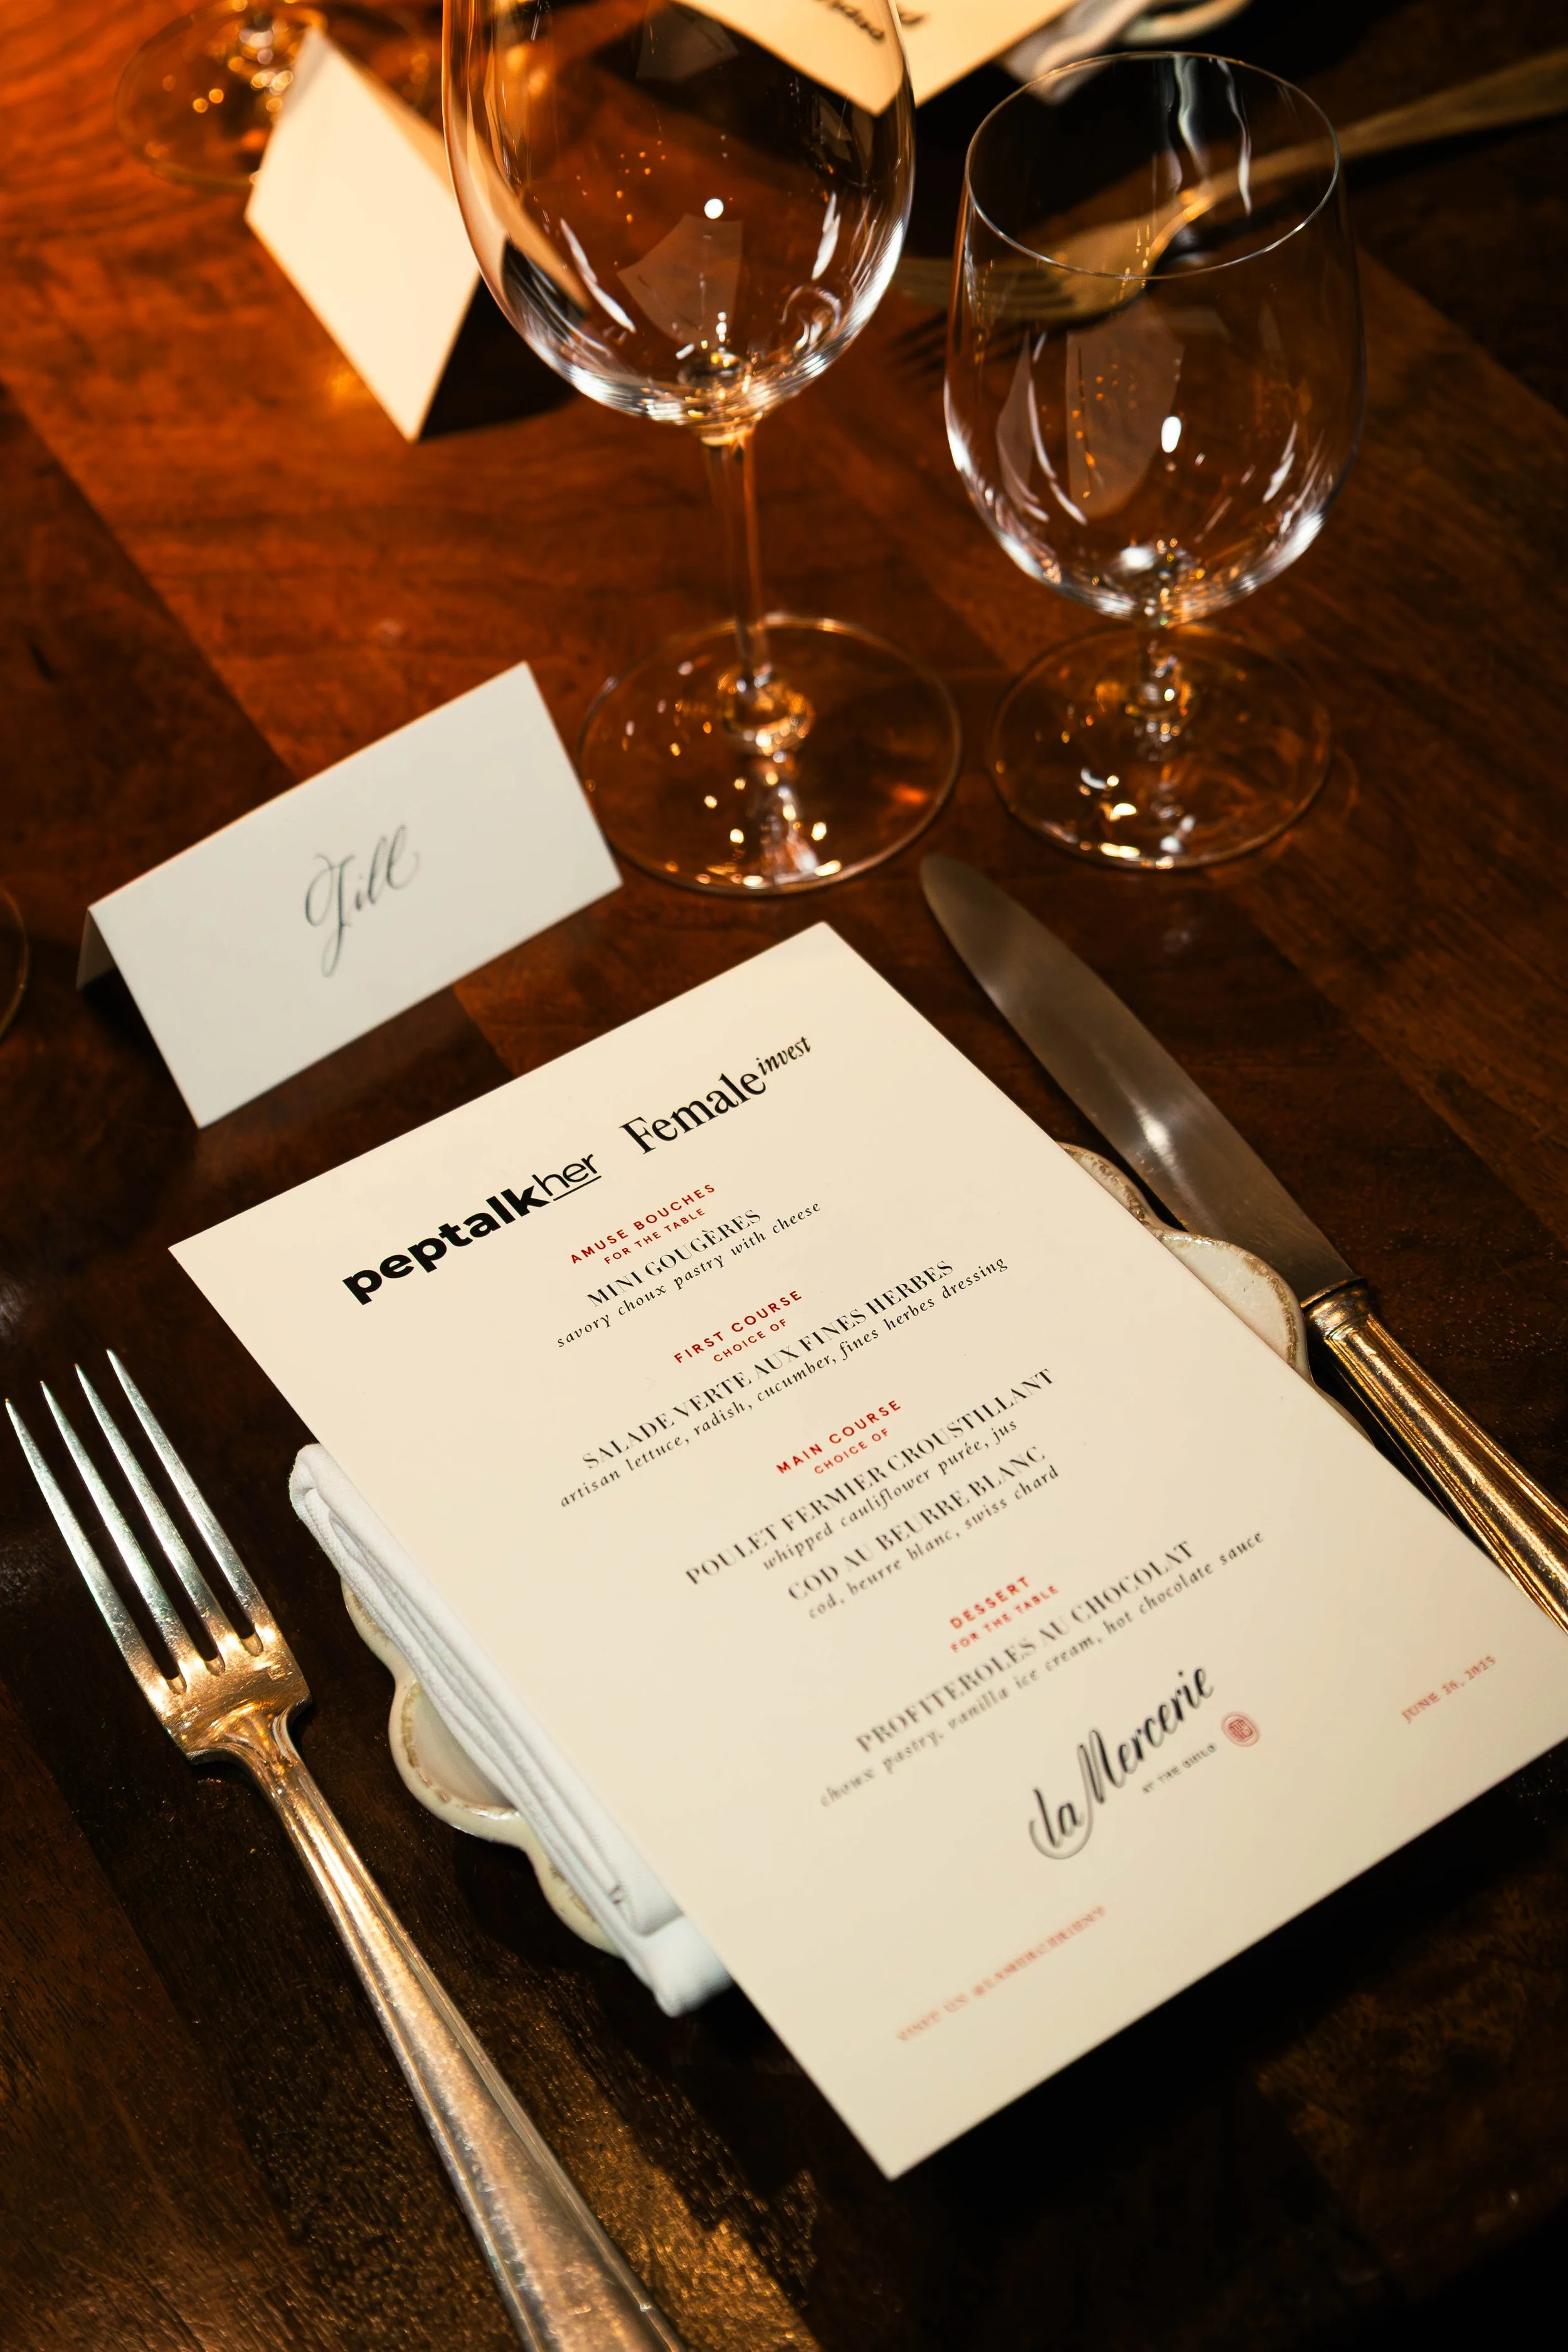 Jill
peptalkher Female invest
AMUSE BOUCHES
FOR THE TABLE
MINI GOUGÈRES
savory choux pastry with cheese
FIRST COURSE
CHOICE OF
SALADE VERTE AUX FINES HERBES
artisan lettuce, radish, cucumber, fines herbes dressing
MAIN COURSE
CHOICE OF
POULET FERMIER CROUSTILLANT
whipped cauliflower purée, jus
COD AU BEURRE BLANC
cod, beurre blanc, swiss chard
DESSERT
FOR THE TABLE
PROFITEROLES AU CHOCOLAT
choux pastry, vanilla ice cream, hot chocolate sauce
la Mercerie
AT THE GUILD
VISIT US @LAMERCERIENY
JUNE 26, 2025